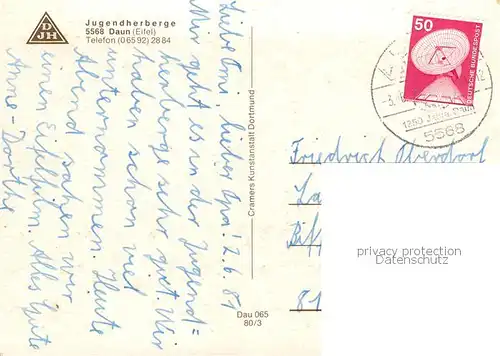 DJH
Jugendherberge
5568 Daun (Eifel)
Telefon (06592) 2884
Liebe Omi, lieber Opa! 2.6.81
Mir geht es in der Jugend=
herberge sehr gut. Wir
haben schon viel
unternommen. Heute
Abend sahen wir
einen Eifelfilm. Alles Gute
Anne-Dorthe
Cramers Kunstanstalt Dortmund
Dau 065
80/3
50
DEUTSCHE BUNDESPOST
5568
Friedrich Oberdorf
81
privacy protection
Datenschutz